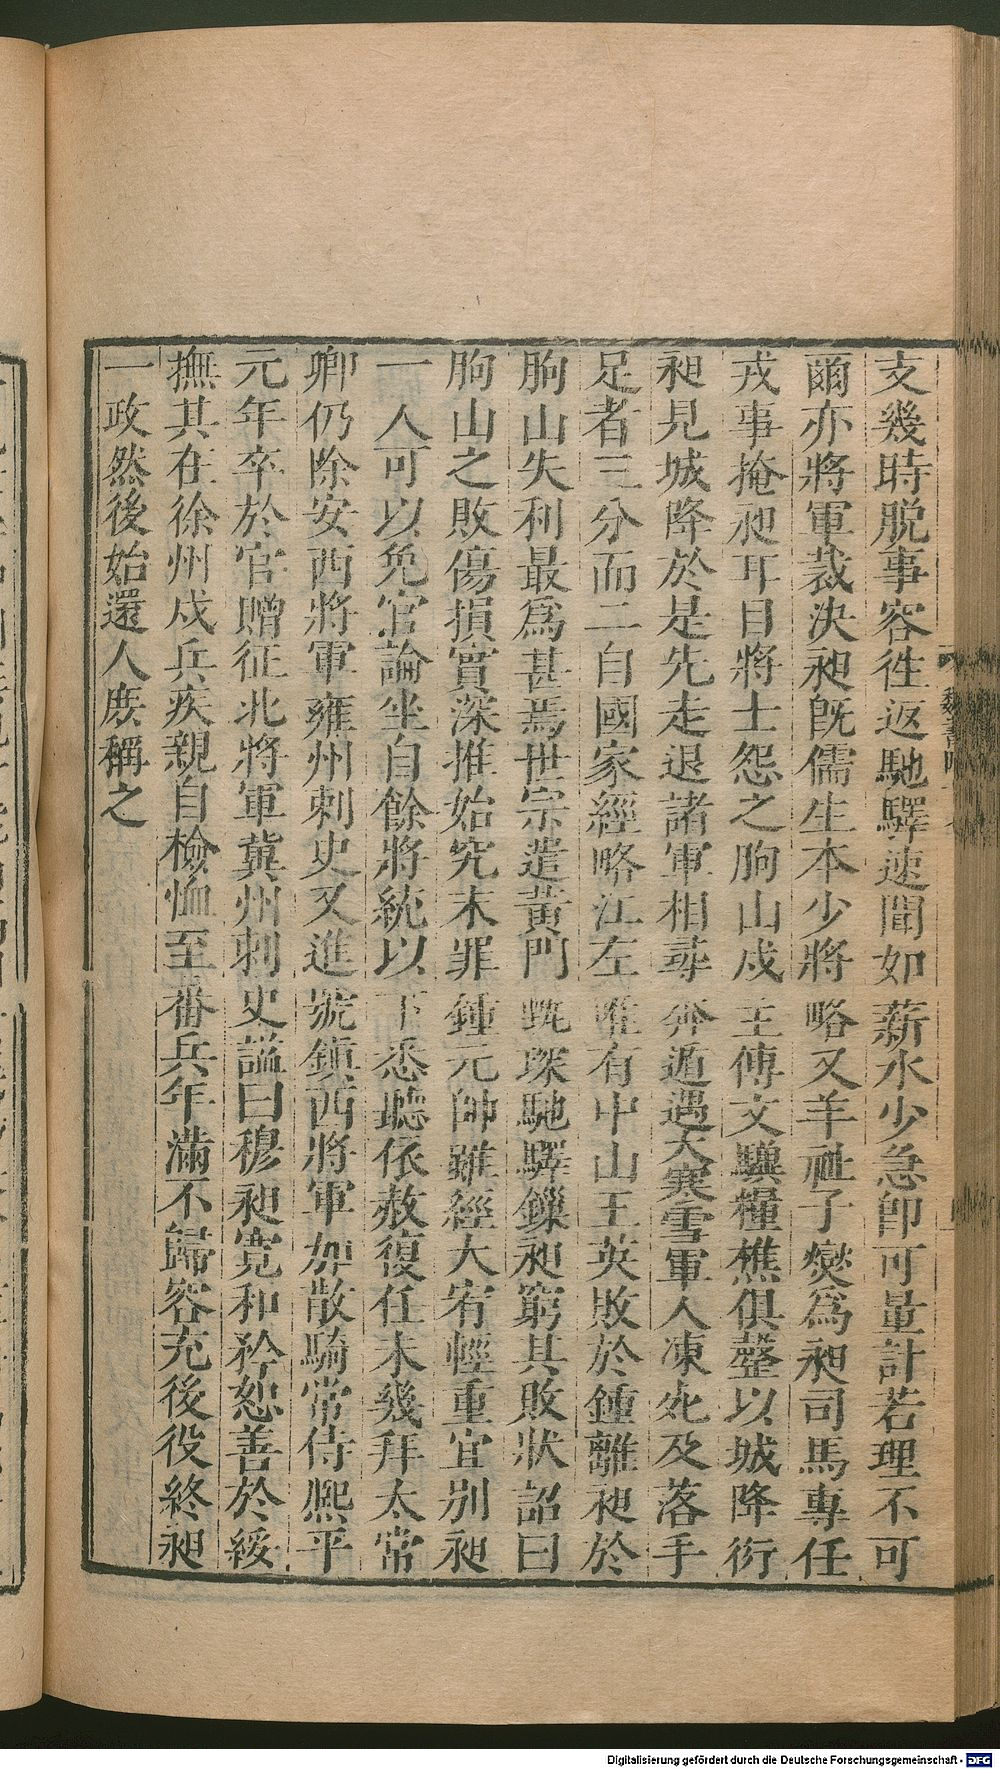 支幾時脫事容徃返馳驛速聞如薪水少急卽可量計若理不可
爾亦將軍裁決昶旣儒生本少將略又羊祉子燮爲昶司馬專任
戎事掩昶耳目將士怨之朐山戍主傅文驥糧樵俱罄以城降衍
昶見城降於是先走退諸軍相尋奔遁遇大寒雪軍人凍死及落手
足者三分而二自國家經略江左唯有中山王英敗於鍾離昶於
朐山失利最爲甚焉世宗遣黃門甄琛馳驛鏁昶窮其敗狀詔曰
朐山之敗傷損實深推始究末罪鍾元帥雖經大宥輕重宜別昶
一人可以免官論坐自餘將統以下悉聽依赦復任未幾拜太常
卿仍除安西將軍雍州刺史又進號鎭西將軍加散騎常侍熙平
元年卒於官贈征北將軍冀州刺史謚曰穆昶寛和矜恕善於綏
撫其在徐州戍兵疾親自檢恤至番兵年滿不歸容充後役終昶
一政然後始還人庶稱之
魏書
Digitalisierung gefördert durch die Deutsche Forschungsgemeinschaft - DFG